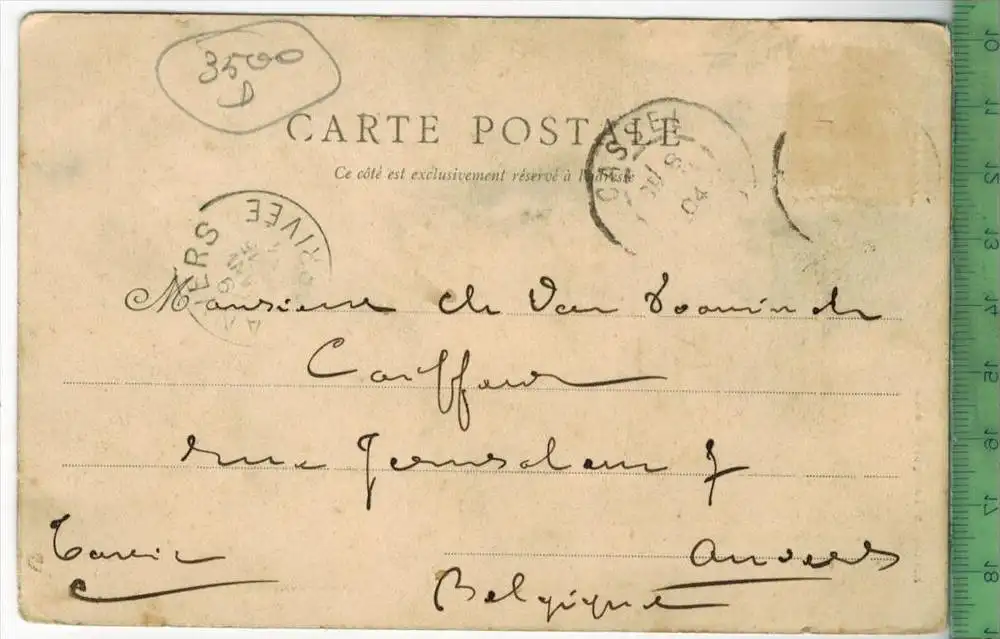 3500
D
CARTE POSTALE
Ce côté est exclusivement réservé à l'adresse
CASSEL
04
ANVERS
ARRIVÉE
Monsieur Ch Van
Coiffeur
rue Jerusalem 7
Anvers
Belgique
10
11
12
13
14
15
16
17
18